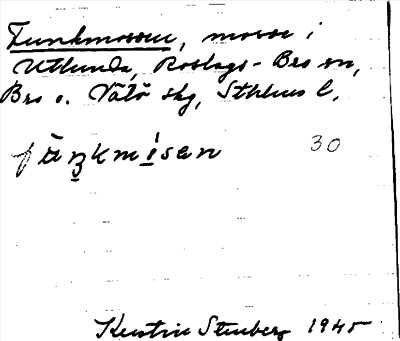 Funkmossen, mosse i
Utlunda, Roslags-Bro sn,
Bro o. Vätö skg, Sthlms l.
fäŋkmisan 30
Kerstin Stenberg 1945